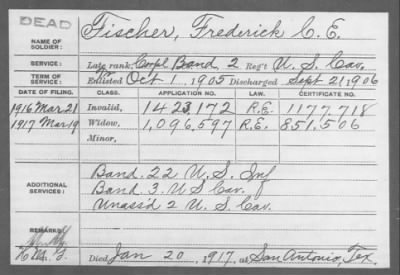 DEAD
NAME OF SOLDIER: Fischer, Frederick C. E.
SERVICE: Late rank, Corpl Band, 2 Reg't U. S. Cav.
TERM OF SERVICE: Enlisted Oct 1, 1905 Discharged Sept 21, 1906
DATE OF FILING. CLASS. APPLICATION NO. LAW. CERTIFICATE NO.
1916 Mar 21 Invalid, 1423,172 R.E. 1177,718
1917 Mar 19 Widow, 1,096,597 R.E. 851,506
Minor,
ADDITIONAL SERVICES:
Band. 22 U. S. Inf
Band. 3. U S Cav.
Unass'd 2 U. S. Cav.
REMARKS:
Died Jan 20, 1917, at San Antonio, Tex.